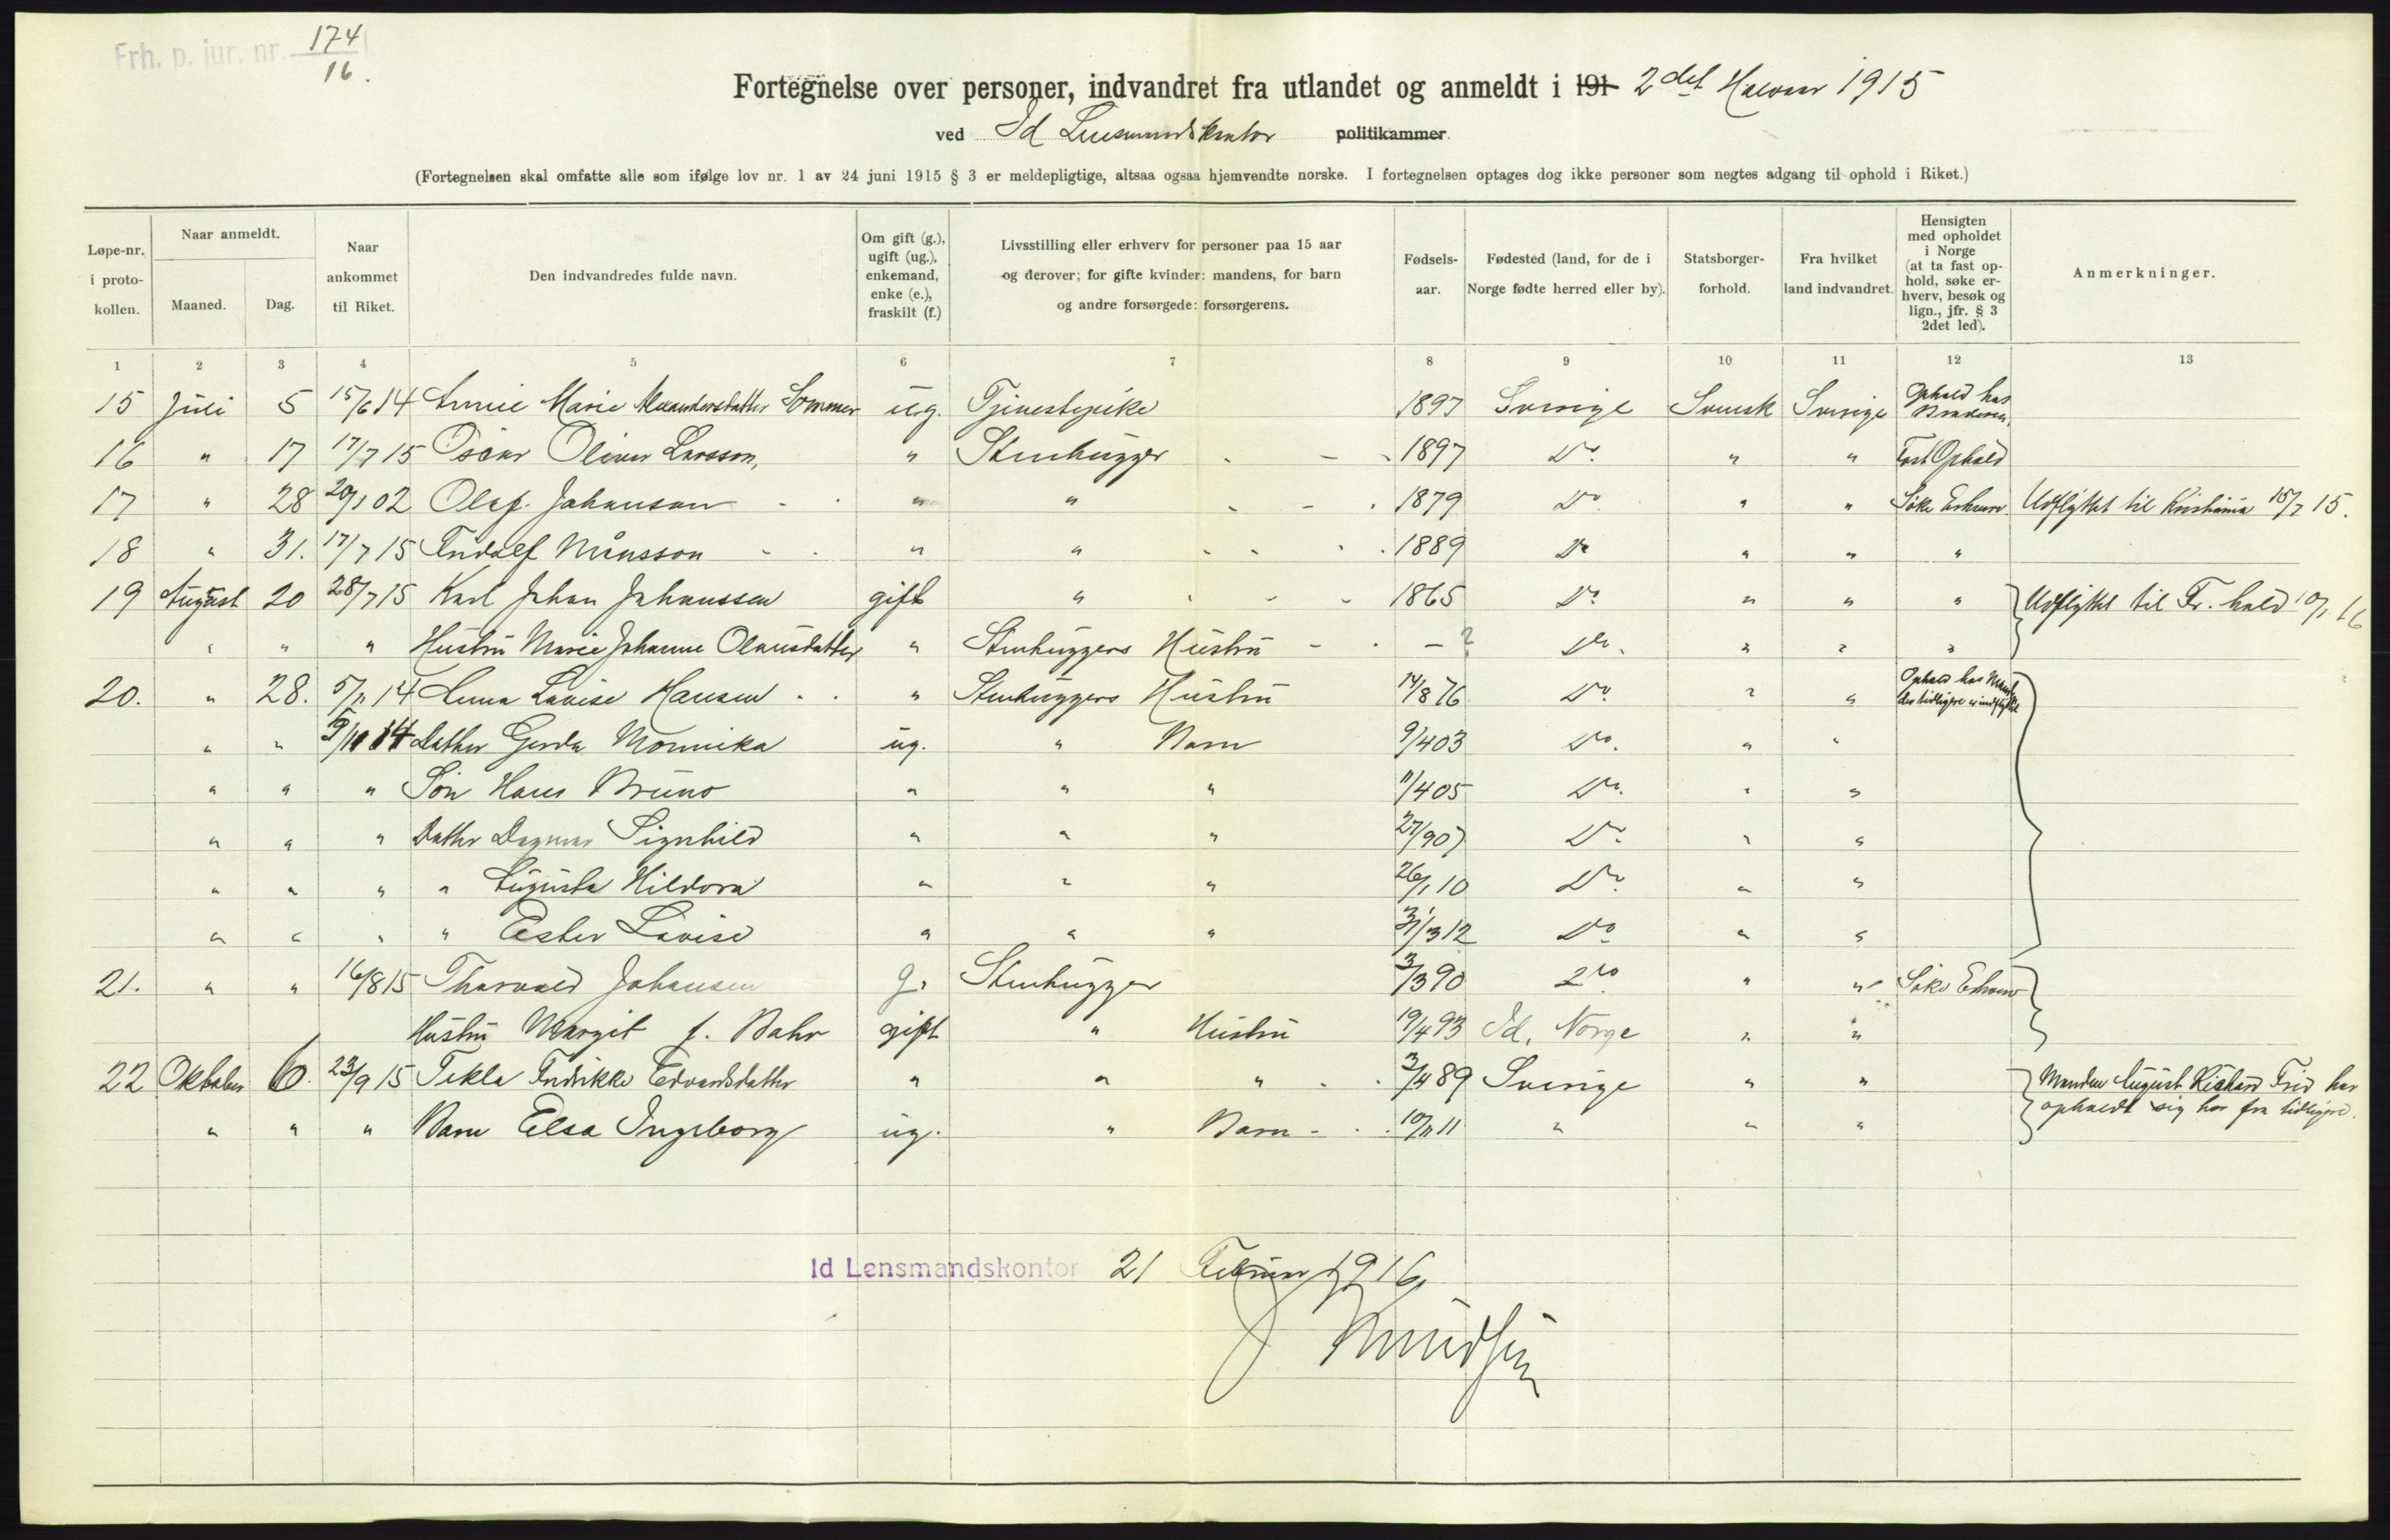 Frh. p. jur. nr. 174/16.
Fortegnelse over personer, indvandret fra utlandet og anmeldt i 191 2det Halvaar 1915
ved Id Lensmandskontor politikammer
(Fortegnelsen skal omfatte alle som ifølge lov nr. 1 av 24 juni 1915 § 3 er meldepligtige, altsaa ogsaa hjemvendte norske. I fortegnelsen optages dog ikke personer som negtes adgang til ophold i Riket.)
Løpe-nr. i proto-kollen.
Naar anmeldt.
Maaned.
Dag.
Naar ankommet til Riket.
Den indvandredes fulde navn.
Om gift (g.), ugift (ug.), enkemand, enke (e.), fraskilt (f.)
Livsstilling eller erhverv for personer paa 15 aar og derover; for gifte kvinder: mandens, for barn og andre forsørgede: forsørgerens.
Fødsels-aar.
Fødested (land, for de i Norge fødte herred eller by).
Statsborger-forhold.
Fra hvilket land indvandret.
Hensigten med opholdet i Norge (at ta fast op-hold, søke er-hverv, besøk og lign., jfr. § 3 2det led).
Anmerkninger.
1 2 3 4 5 6 7 8 9 10 11 12 13
15 Juli 5 15/6 14 Annie Marie Alexandersdatter Sommer ug. Tjenestepike 1897 Sverige Svensk Sverige Ophold hos Broderen.
16 " 17 17/7 15 Oscar Oliver Larsson, " Stenhugger - - - 1897 Do. " " Fast Ophold
17 " 28 20/1 02 Olaf Johanson - - " " - - - 1879 Do " " Söke Erhverv Udflyttet til Kristiania 15/7 15.
18 " 31. 17/7 15 Fridolf Månsson - - " " - - - - 1889 Do " " "
19 August 20 28/7 15 Karl Johan Johanssen gift " - - - 1865 Do. " " " Udflyttet til Fr. hald 10/1 16
" " " Hustru Marie Johanne Olausdatter " Stenhuggers Hustru - - - ? Do. " " "
20. " 28. 5/11 14 Anna Lovise Hansen - - " Stenhuggers Hustru 14/8 76 Do. " " Ophold hos Mand der tidligere er indflyttet
" " 5/11 14 Datter Gerda Monnika ug. " Barn 9/4 03 Do. " "
" " " Sön Hans Bruno " " " 11/4 05 Do. " "
" " " Datter Dagmar Signhild " " " 27/ 907 Do. " "
" " " " Augusta Hildora " " " 26/1 10 Do. " "
" " " " Ester Lovise " " " 31/3 12 Do " "
21. " " 16/8 15 Thorvald Johansen g. Stenhugger 3/3 90 Do " " Söke Erhverv
Hustru Margit f. Bahr gift " Hustru 19/4 93 Id, Norge " "
22 Oktober 6. 23/9 15 Tekla Fredrikke Edvardsdatter " " " - - 2/4 89 Sverige " " Manden August Rickard Frid har
" " " Barn Elsa Ingeborg ug. " Barn - - - 10/11 11 " " " opholdt sig her fra tidligere.
Id Lensmandskontor 21 Februar 1916.
J Knudsen